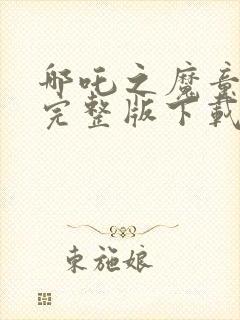 哪吒之魔童
完整版下载
束施娘